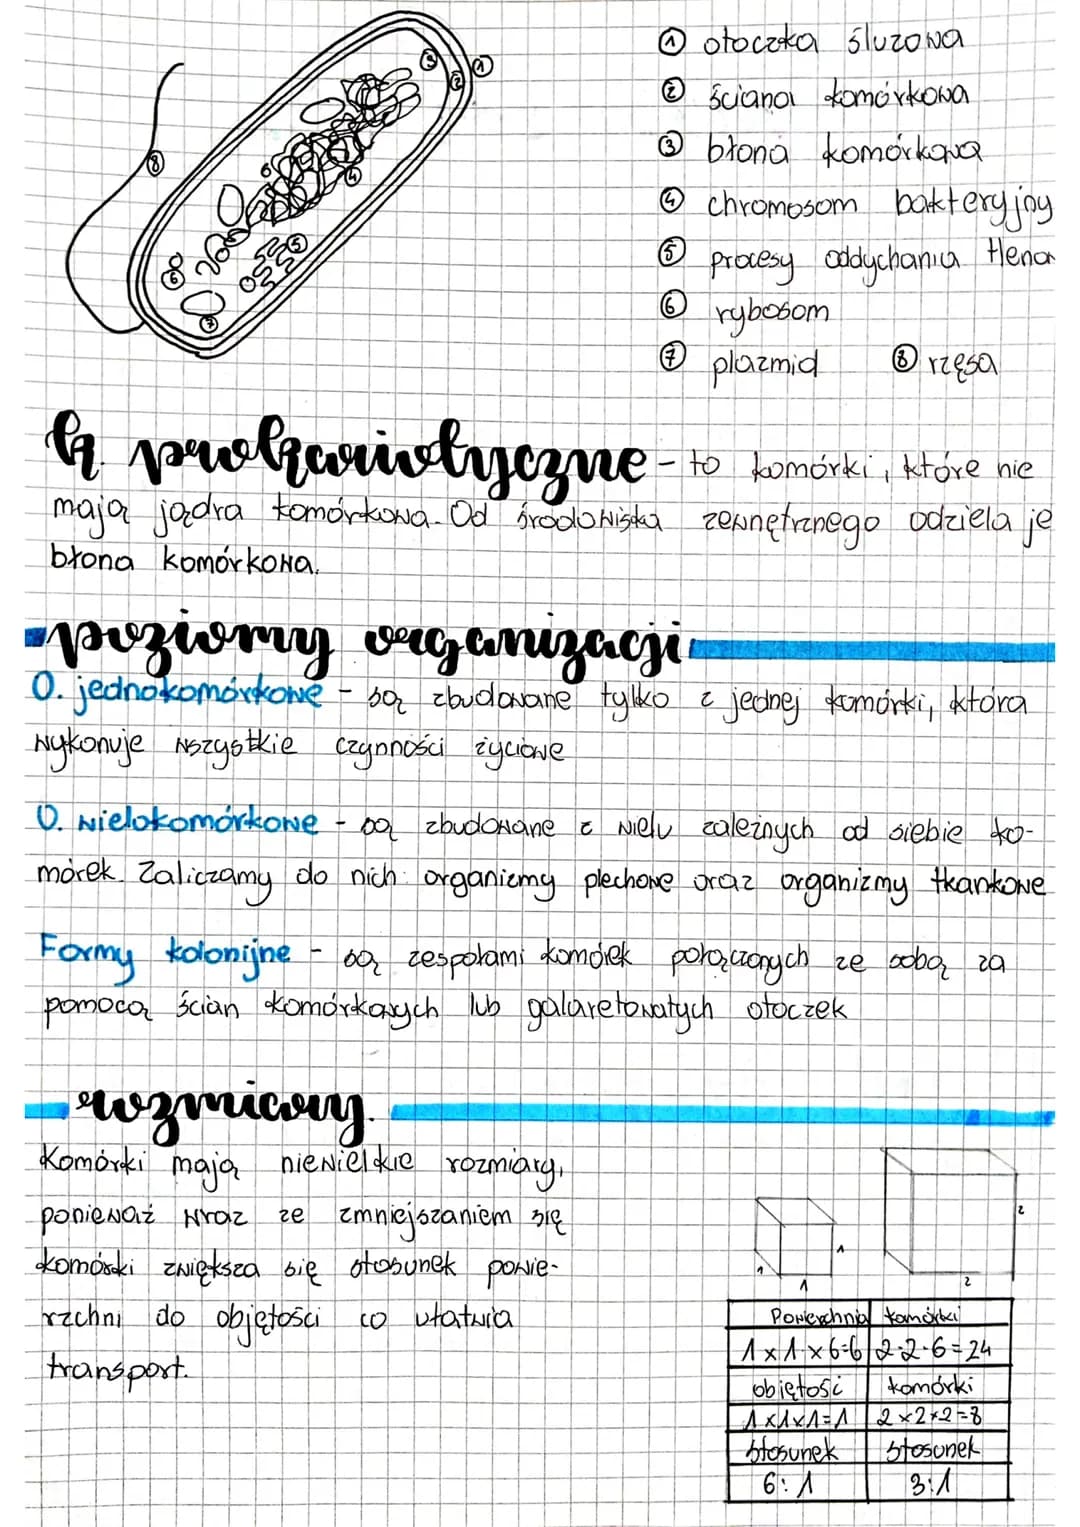 ① otoczka śluzowa
② ściana komórkowa
③ błona komórkowa
④ chromosom bakteryjny
⑤ procesy oddychania tleno
⑥ rybosom
⑦ plazmid ⑧ rzęsa
1
2
3
4
5
6
7
8
k. prokariotyczne - to komórki, które nie
mają jądra komórkowa. Od środowiska zewnętrznego odziela je
błona komórkowa.
poziomy organizacji
O. jednokomórkowe - są zbudowane tylko z jednej komórki, która
wykonuje wszystkie czynności życiowe
O. wielokomórkowe - są zbudowane z wielu zależnych od siebie ko-
mórek. Zaliczamy do nich: organizmy plechowe oraz organizmy tkankowe
Formy kolonijne - są zespołami komórek połączonych ze sobą za
pomocą ścian komórkowych lub galaretowatych otoczek
rozmiary.
Komórki mają niewielkie rozmiary,
ponieważ wraz ze zmniejszaniem się
komórki zwiększa się stosunek powie-
rzchni do objętości co ułatwia
transport.
1 1 1
2 2
Powierzchnia komórki
1x1x6=6 2·2·6=24
objętość komórki
1x1x1=1 2x2x2=8
stosunek stosunek
6:1 3:1